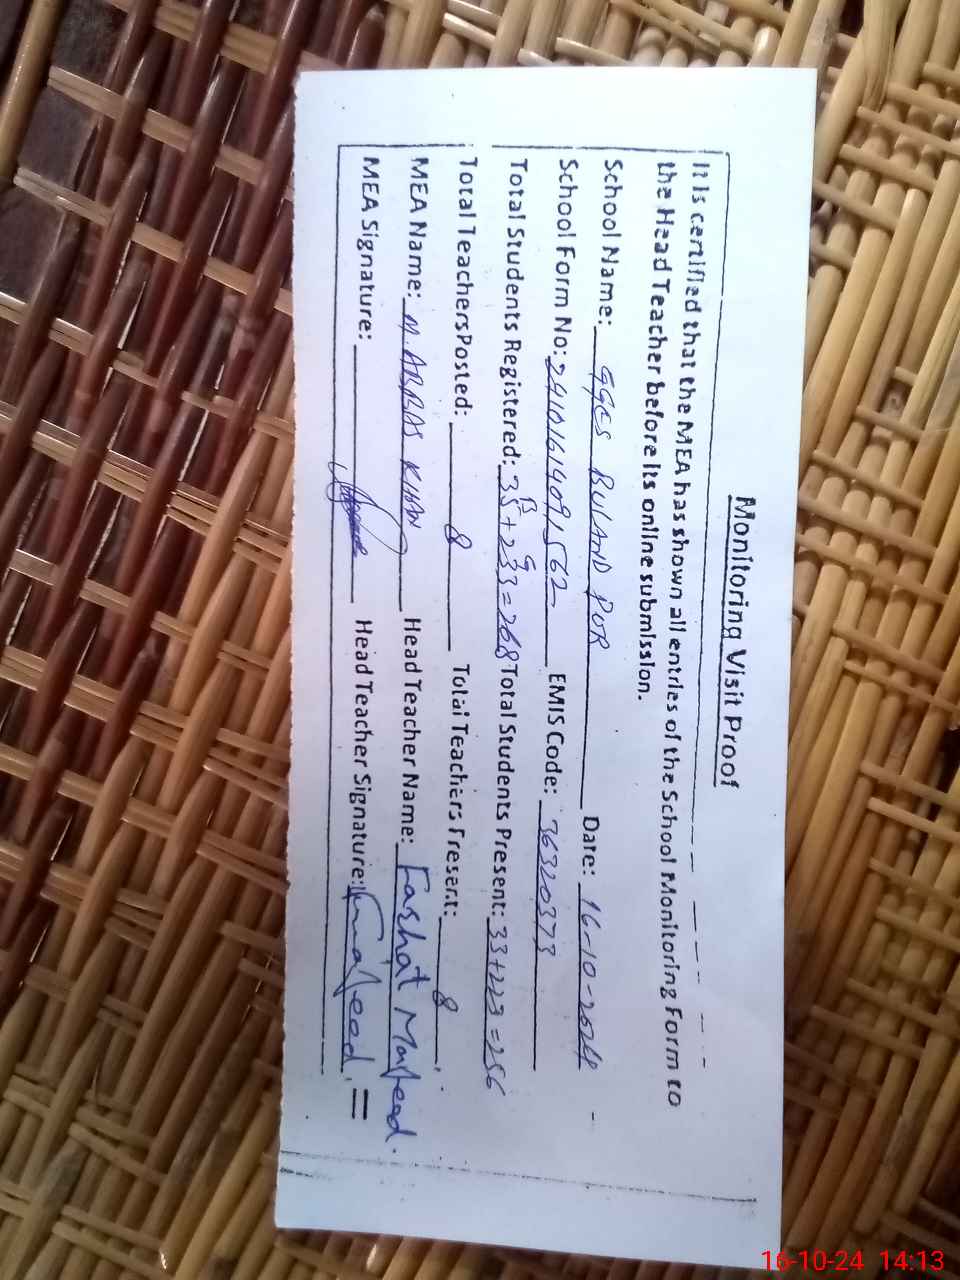 Monitoring Visit Proof
It is certified that the MEA has shown all entries of the School Monitoring Form to
the Head Teacher before its online submission.
School Name: GGES BULAND PUR Date: 16-10-2024
School Form No: EMIS Code: 36320373
B G
Total Students Registered: 35+233=268 Total Students Present: 33+223=256
Total Teachers Posted: 8 Total Teachers Present: 8
MEA Name: M. ABBAS KHAN Head Teacher Name:
MEA Signature: Head Teacher Signature:
16-10-24 14:13